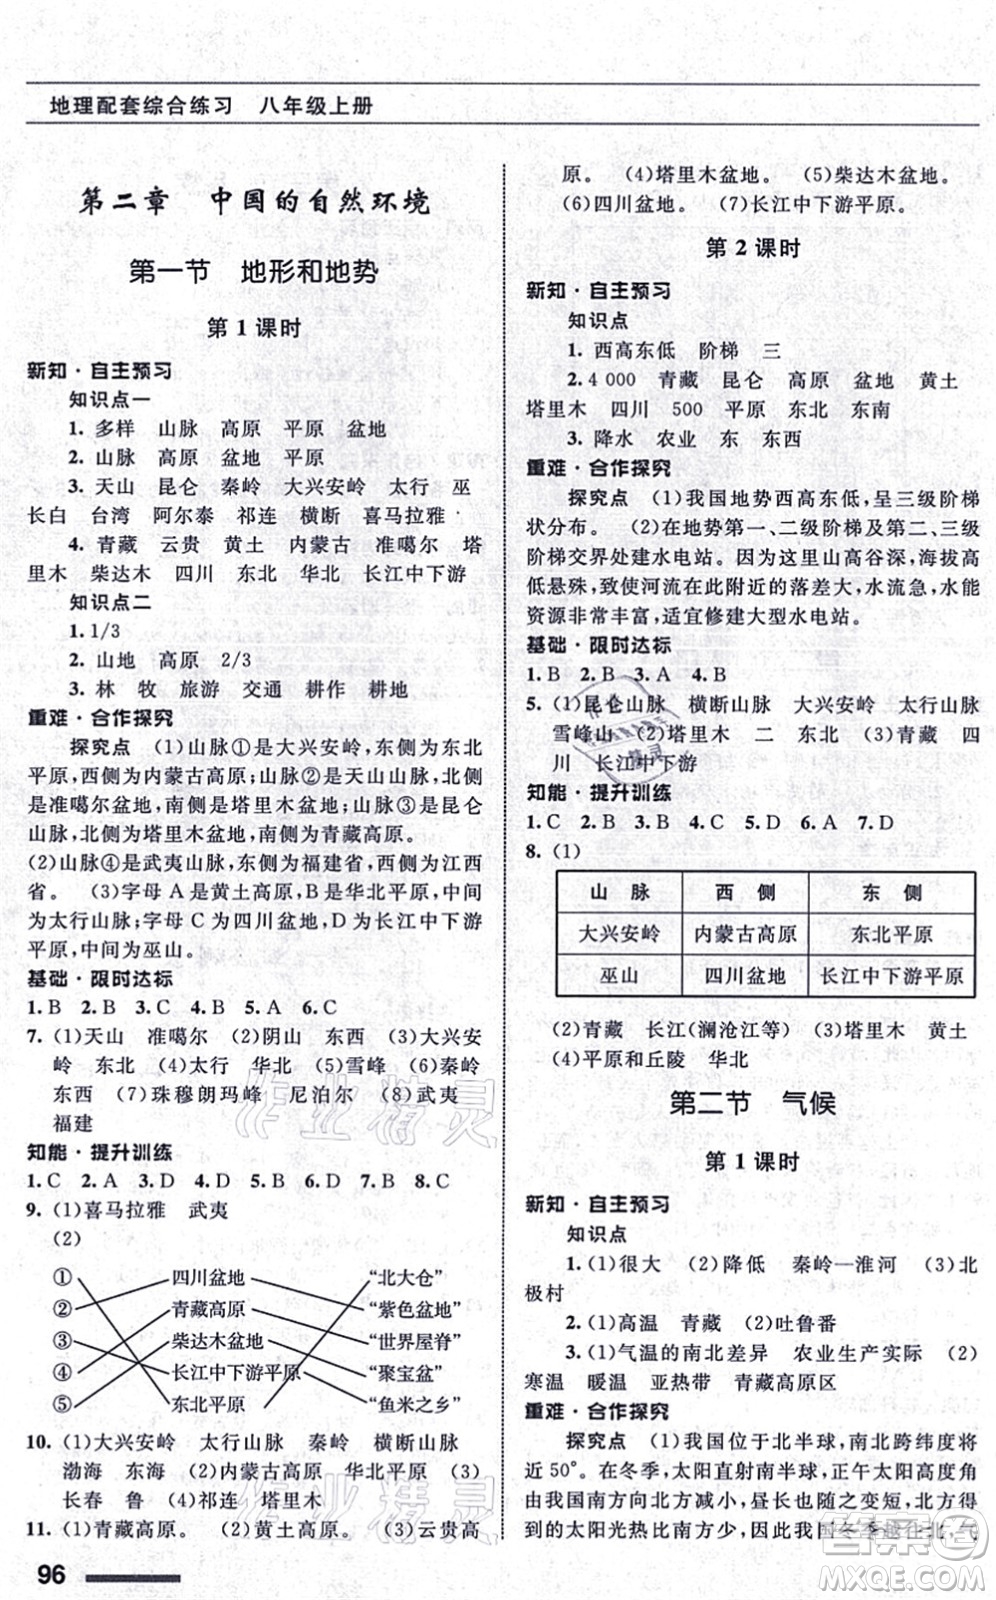 地理配套综合练习 八年级上册
第二章 中国的自然环境
第一节 地形和地势
第1课时
新知·自主预习
知识点一
1. 多样 山脉 高原 平原 盆地
2. 山脉 高原 盆地 平原
3. 天山 昆仑 秦岭 大兴安岭 太行 巫
长白 台湾 阿尔泰 祁连 横断 喜马拉雅
4. 青藏 云贵 黄土 内蒙古 准噶尔 塔
里木 柴达木 四川 东北 华北 长江中下游
知识点二
1. 1/3
2. 山地 高原 2/3
3. 林 牧 旅游 交通 耕作 耕地
重难·合作探究
探究点 (1)山脉①是大兴安岭,东侧为东北
平原,西侧为内蒙古高原;山脉②是天山山脉,北侧
是准噶尔盆地,南侧是塔里木盆地;山脉③是昆仑
山脉,北侧为塔里木盆地,南侧为青藏高原。
(2)山脉④是武夷山脉,东侧为福建省,西侧为江西
省。 (3)字母A是黄土高原,B是华北平原,中间
为太行山脉;字母C是四川盆地,D为长江中下游
平原,中间为巫山。
基础·限时达标
1. B 2. B 3. C 4. B 5. A 6. C
7. (1)天山 准噶尔 (2)阴山 东西 (3)大兴安
岭 东北 (4)太行 华北 (5)雪峰 (6)秦岭
东西 (7)珠穆朗玛峰 尼泊尔 (8)武夷
福建
知能·提升训练
1. C 2. A 3. D 4. D 5. B 6. D 7. A 8. D
9. (1)喜马拉雅 武夷
(2)
① 四川盆地 “北大仓”
② 青藏高原 “紫色盆地”
③ 柴达木盆地 “世界屋脊”
④ 长江中下游平原 “聚宝盆”
⑤ 东北平原 “鱼米之乡”
10. (1)大兴安岭 太行山脉 秦岭 横断山脉
渤海 东海 (2)内蒙古高原 华北平原 (3)
长春 鲁 (4)祁连 塔里木
11. (1)青藏高原。 (2)黄土高原。 (3)云贵高
96
原。 (4)塔里木盆地。 (5)柴达木盆地。
(6)四川盆地。 (7)长江中下游平原。
第2课时
新知·自主预习
知识点
1. 西高东低 阶梯 三
2. 4 000 青藏 昆仑 高原 盆地 黄土
塔里木 四川 500 平原 东北 东南
3. 降水 农业 东 东西
重难·合作探究
探究点 (1)我国地势西高东低,呈三级阶梯
状分布。 (2)在地势第一、二级阶梯及第二、三级
阶梯交界处建水电站。因为这里山高谷深,海拔高
低悬殊,致使河流在此附近的落差大,水流急,水能
资源非常丰富,适宜修建大型水电站。
基础·限时达标
1. B 2. B 3. A 4. B
5. (1)昆仑山脉 横断山脉 大兴安岭 太行山脉
雪峰山 (2)塔里木 二 东北 (3)青藏 四
川 长江中下游
知能·提升训练
1. C 2. B 3. B 4. C 5. D 6. A 7. D
8. (1)
山脉 西侧 东侧
大兴安岭 内蒙古高原 东北平原
巫山 四川盆地 长江中下游平原
(2)青藏 长江(澜沧江等) (3)塔里木 黄土
(4)平原和丘陵 华北
第二节 气候
第1课时
新知·自主预习
知识点
1. (1)很大 (2)降低 秦岭—淮河 (3)北
极村
2. (1)高温 青藏 (2)吐鲁番
3. (1)气温的南北差异 农业生产实际 (2)
寒温 暖温 亚热带 青藏高原区
重难·合作探究
探究点 (1)我国位于北半球,南北跨纬度将
近50°。在冬季,太阳直射南半球,正午太阳高度角
在我国南方向北方减小,昼长也随之变短,北方得
到的太阳光热比南方少,因此我国冬季越往北,气
作业精灵
作业精灵
答案圈
MXQE.COM